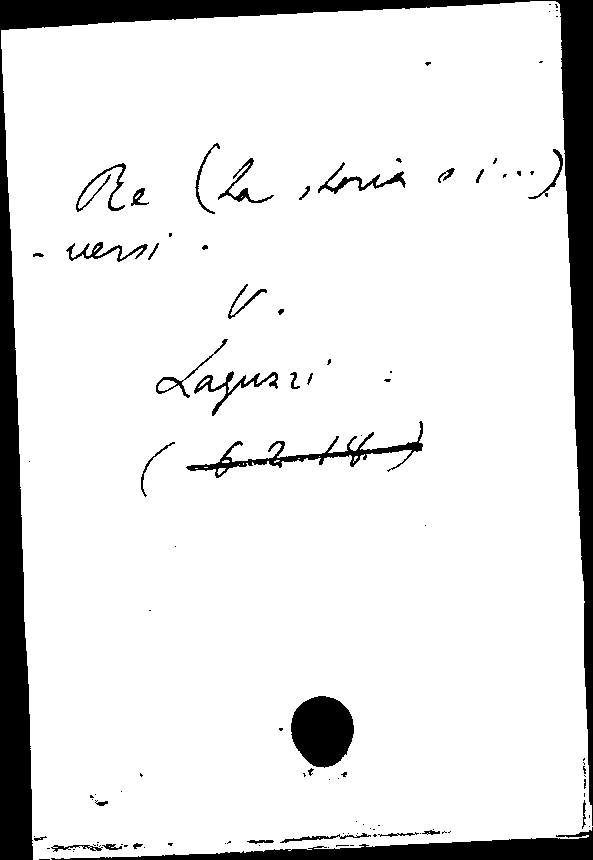 Re (La storia s i...)
- versi.
V.
Laguzzi.
( 6.2.18. )